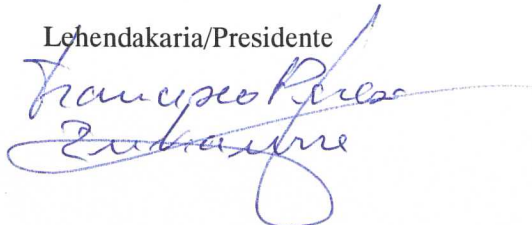 Lehendakaria/Presidente
Francisco Pérez